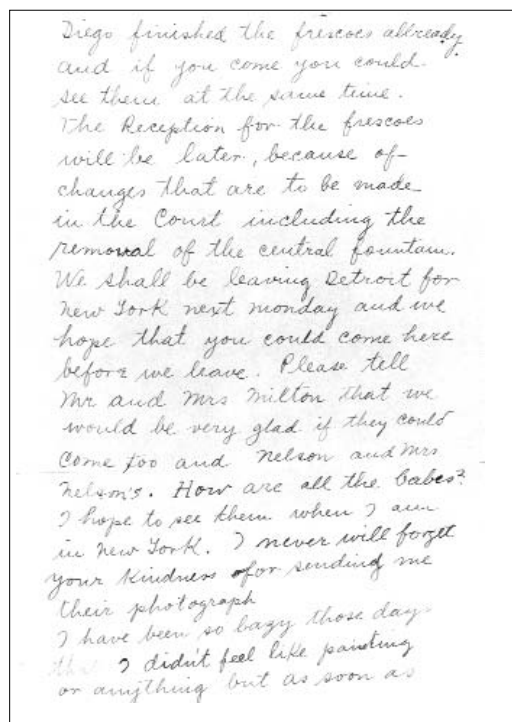 Diego finished the frescoes allready
and if you come you could
see them at the same time.
The Reception for the frescoes
will be later, because of
changes that are to be made
in the Court including the
removal of the central fountain.
We shall be leaving Detroit for
New York next monday and we
hope that you could come here
before we leave. Please tell
Mr and Mrs Milton that we
would be very glad if they could
come too and Nelson and Mrs
Nelson's. How are all the babes?
I hope to see them when I am
in New York. I never will forget
your kindness for sending me
their photograph
I have been so lazy those days
I didn't feel like painting
or anything but as soon as